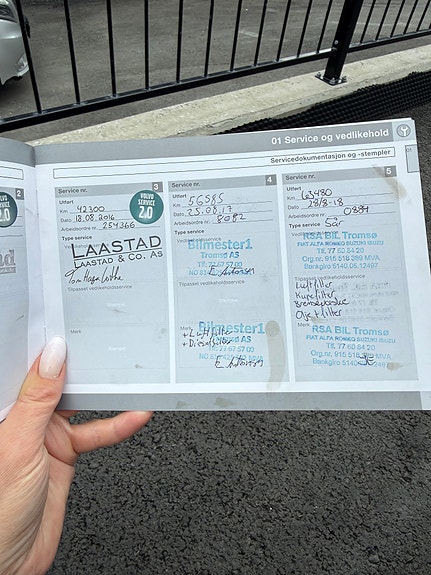 01 Service og vedlikehold
Servicedokumentasjon og -stempler
01
2
VOLVO
SERVICE
2.0
Service nr.
3
Utført
Km 42300
Dato 18.08.2016
Arbeidsordre nr. 254366
Type service
VOLVO
SERVICE
2.0
LAASTAD
LAASTAD & CO. AS
Tilpasset vedlikeholdsservice
Merk
Service nr.
4
Utført
Km 56585
Dato 25.08.17
Arbeidsordre nr. 8082
Type service
Bilmester1
Tromsø AS
Tlf: 77 67 57 00
Tilpasset vedlikeholdsservice
Merk
Bilmester1
+ Luftfilter
Tromsø AS
+ Dieselfilter
Tlf: 77 67 57 00
Service nr.
5
Utført
Km 63480
Dato 28/8-18
Arbeidsordre nr. 0884
Type service
RSA BIL Tromsø
FIAT ALFA ROMEO SUZUKI ISUZU
Tlf. 77 60 84 20
Org.nr. 915 518 389 MVA
Bankgiro 5140.05.12497
Tilpasset vedlikeholdsservice
Luftfilter
Kupefilter
Bremsevæske
Olje + filter
RSA BIL Tromsø
FIAT ALFA ROMEO SUZUKI ISUZU
Tlf. 77 60 84 20
Org.nr. 915 518 389 MVA